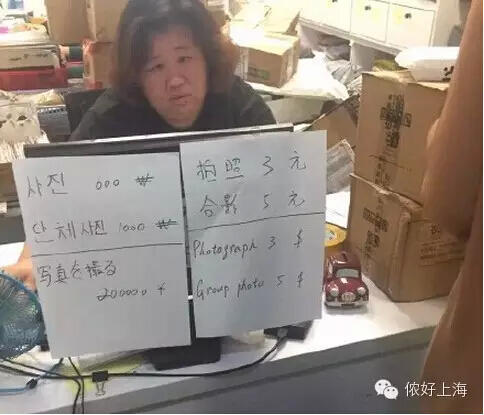 사진 000 ₩
단체사진 1000 ₩
写真を撮る
200000 ¥
拍照 3 元
合影 5 元
Photograph 3 $
Group photo 5 $
侬好上海